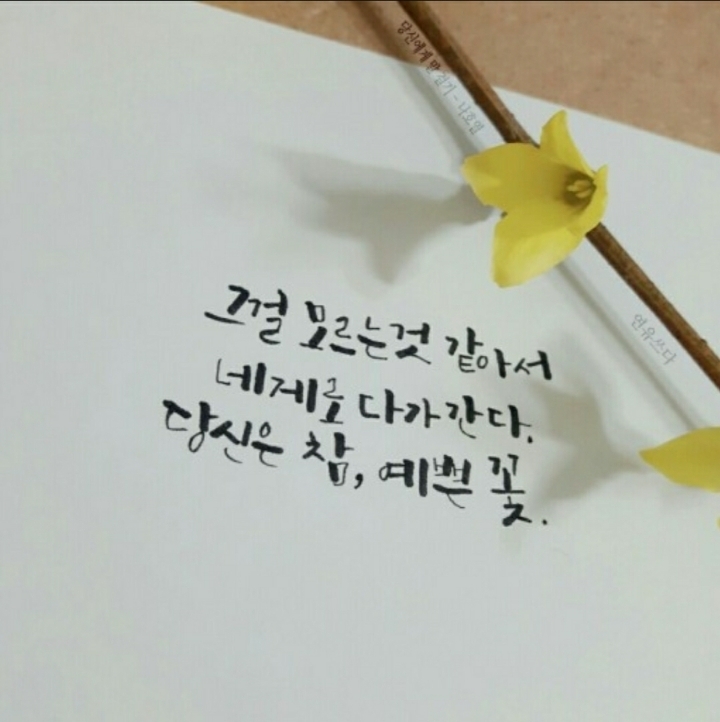 당신에게 말 걸기 - 나호열
연유쓰다
그걸 모르는것 같아서
네게로 다가간다.
당신은 참, 예쁜 꽃.